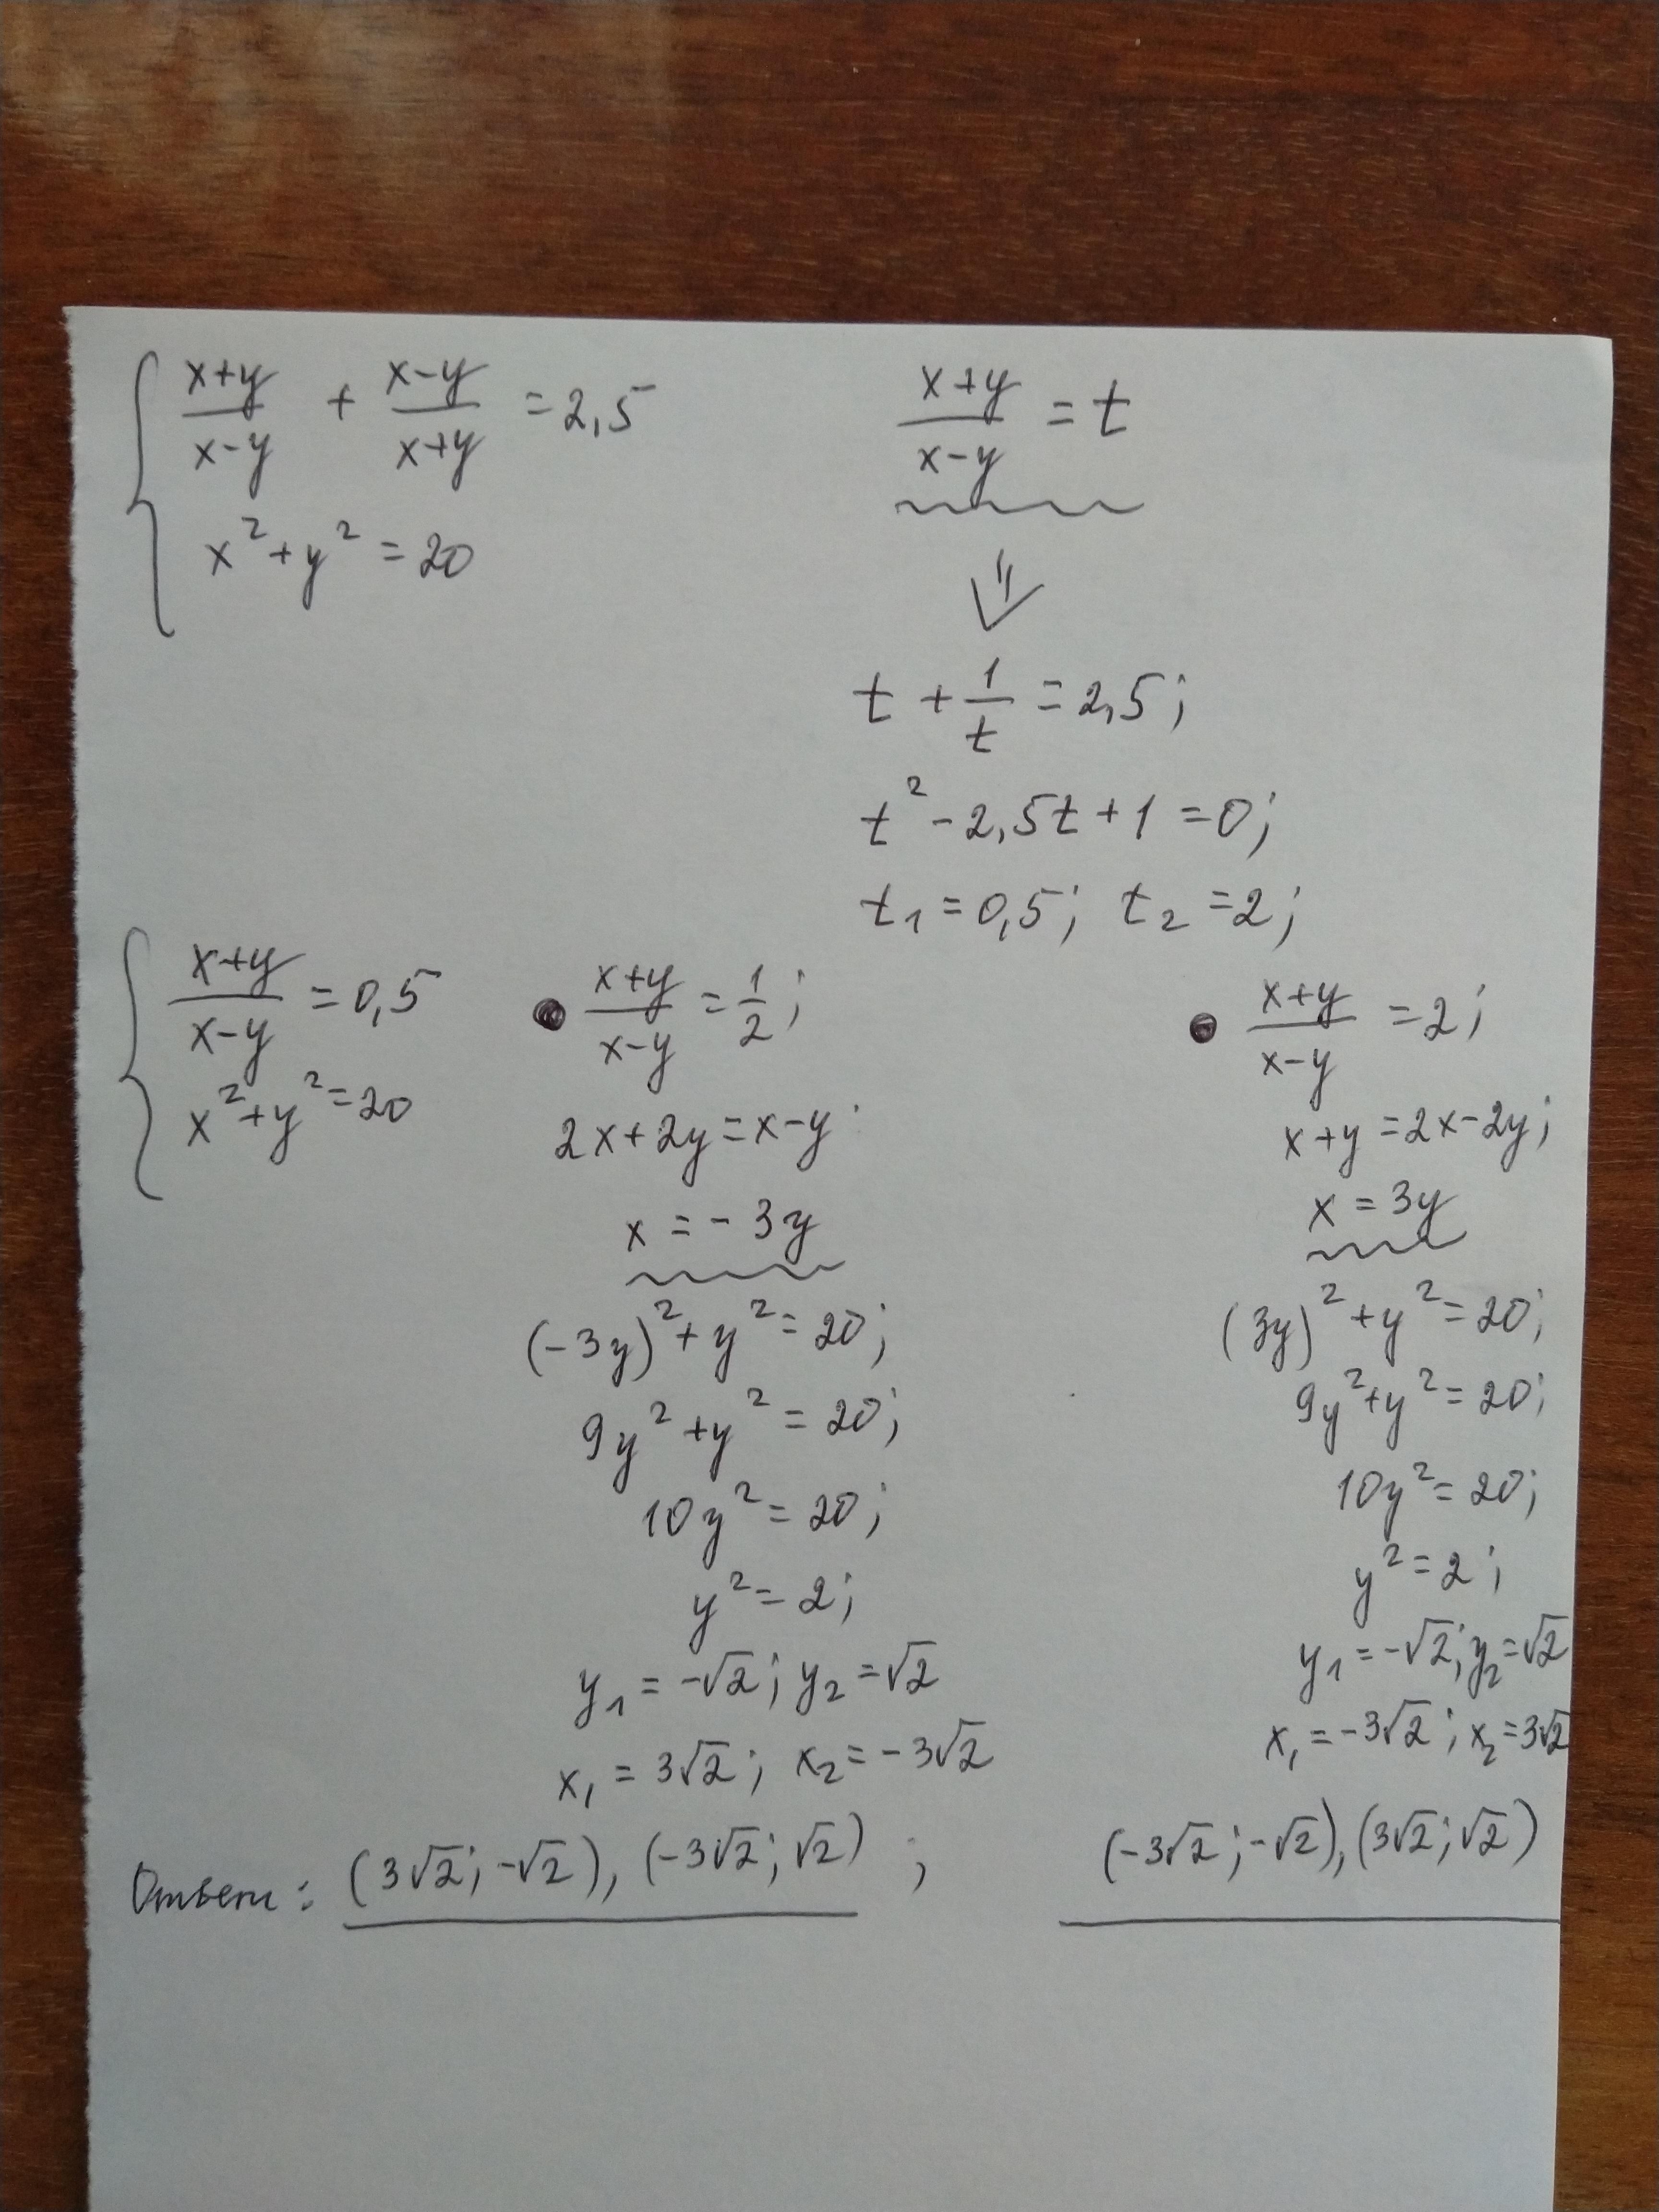 x+y/x-y + x-y/x+y = 2,5
x² + y² = 20
x+y/x-y = t
⇓
t + 1/t = 2,5;
t² - 2,5t + 1 = 0;
t₁ = 0,5; t₂ = 2;
x+y/x-y = 0,5
x² + y² = 20
• x+y/x-y = 1/2;
2x + 2y = x - y
x = -3y
(-3y)² + y² = 20;
9y² + y² = 20;
10y² = 20;
y² = 2;
y₁ = -√2; y₂ = √2
x₁ = 3√2; x₂ = -3√2
• x+y/x-y = 2;
x + y = 2x - 2y;
x = 3y
(3y)² + y² = 20;
9y² + y² = 20;
10y² = 20;
y² = 2;
y₁ = -√2; y₂ = √2
x₁ = -3√2; x₂ = 3√2
Ответ: (3√2; -√2), (-3√2; √2) ; (-3√2; -√2), (3√2; √2)